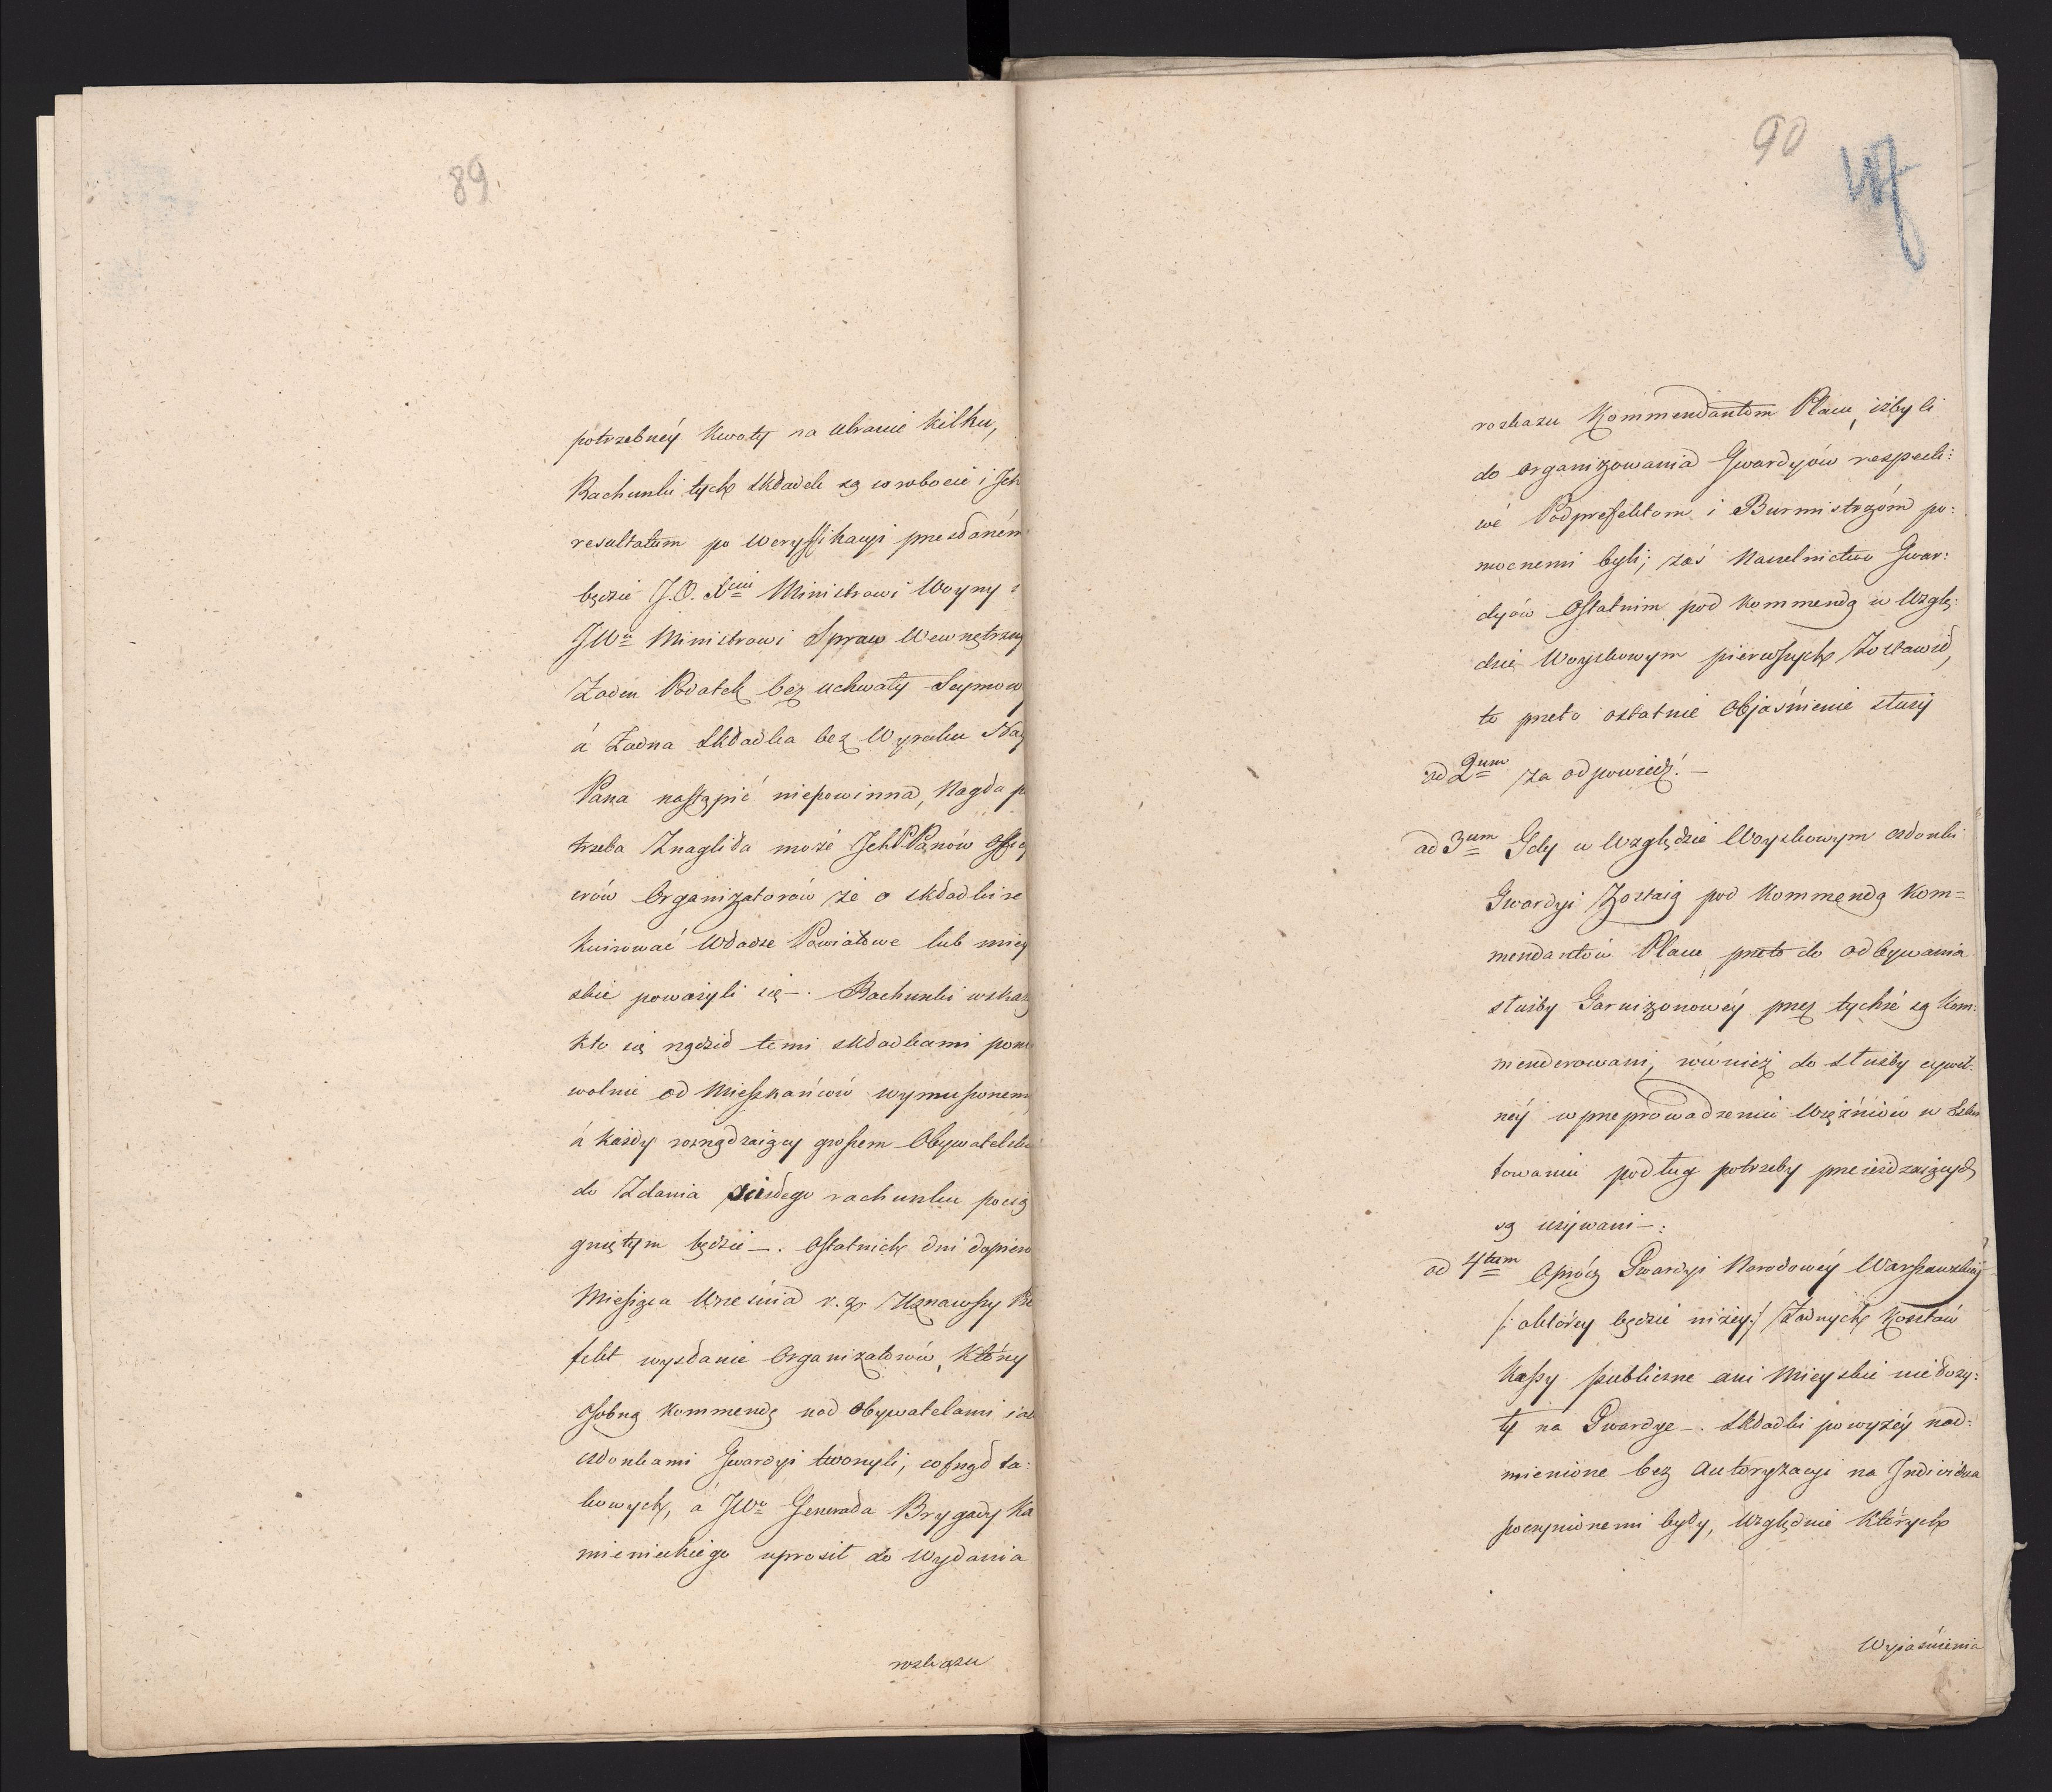 89.
potrzebnéy kwoty na ubranie kilku,
Rachunki tych składek są w robocie i Jch
resultatum po weryffikacyi przesłaném
będzie J.O. Xciu Ministrowi Woyny i
JWu Ministrowi Spraw Wewnętrzny
Żaden Podatek bez uchwały Seymow
á Żadna składka bez Wyroku Nay
Pana nastąpić niepowinna, Nagła p
trzeba Znagliła może Jch PPanów Offic
erów Organizatorów że o składki re
kwirować Władze Powiatowe lub miey
skie poważyli się —. Rachunki wskażą
kto się rządził temi składkami pom
wolnie od Mieszkańców wymuszonemi
á każdy rozrządzaiący groszem Obywatelski
do Zdania ścisłego rachunku pocią
gniętym będzie —. Ostatnich dni dopiero
Miesiąca Września r. z. Uznawszy Pre
fekt wysłanie Organizatorów, którzy
osobną kommendę nad Obywatelami iak
członkami Gwardyi tworzyli, cofnął ta:
kowych, á JWo Generała Brygady Ka
mienieckiego uprosił do wydania
rozkazu
90
rozkazu Kommendantom Placu, iżby li
do organizowania Gwardyów respecti:
wé Podprefektom i Burmistrzóm po:
mocnemi byli; zaś Naczelnictwo Gwar:
dyów Ostatnim pod kommendą w Wzglę:
dzie Woyskowym pierwszych Zostawił,
to przeto ostatnie Objaśnienie służy
ad 2um za odpowiedź. —
ad 3um Gdy w Względzie Woyskowym członki
Gwardyi Zostaią pod Kommendą Kom=
mendantów Placu przeto do odbywania
służby Garnizonowéy przez tychże są kom:
menderowani, również do służby cywil:
néy w przeprowadzeniu Więźniów w Esko
towaniu podług potrzeby przeieżdzaiących
są używani —.
ad 4tum Oprócz Gwardyi Narodowéy Warszawskiéy
/: októrey będzie niżey :/ Żadnych Kosztów
Kassy publiczne ani Mieyskie nie łoży:
ły na Gwardye —. Składki powyżéy nad:
mienione bez Autoryzacyi na Individua
poczynionemi były, względnie których
Wyiaśnienia